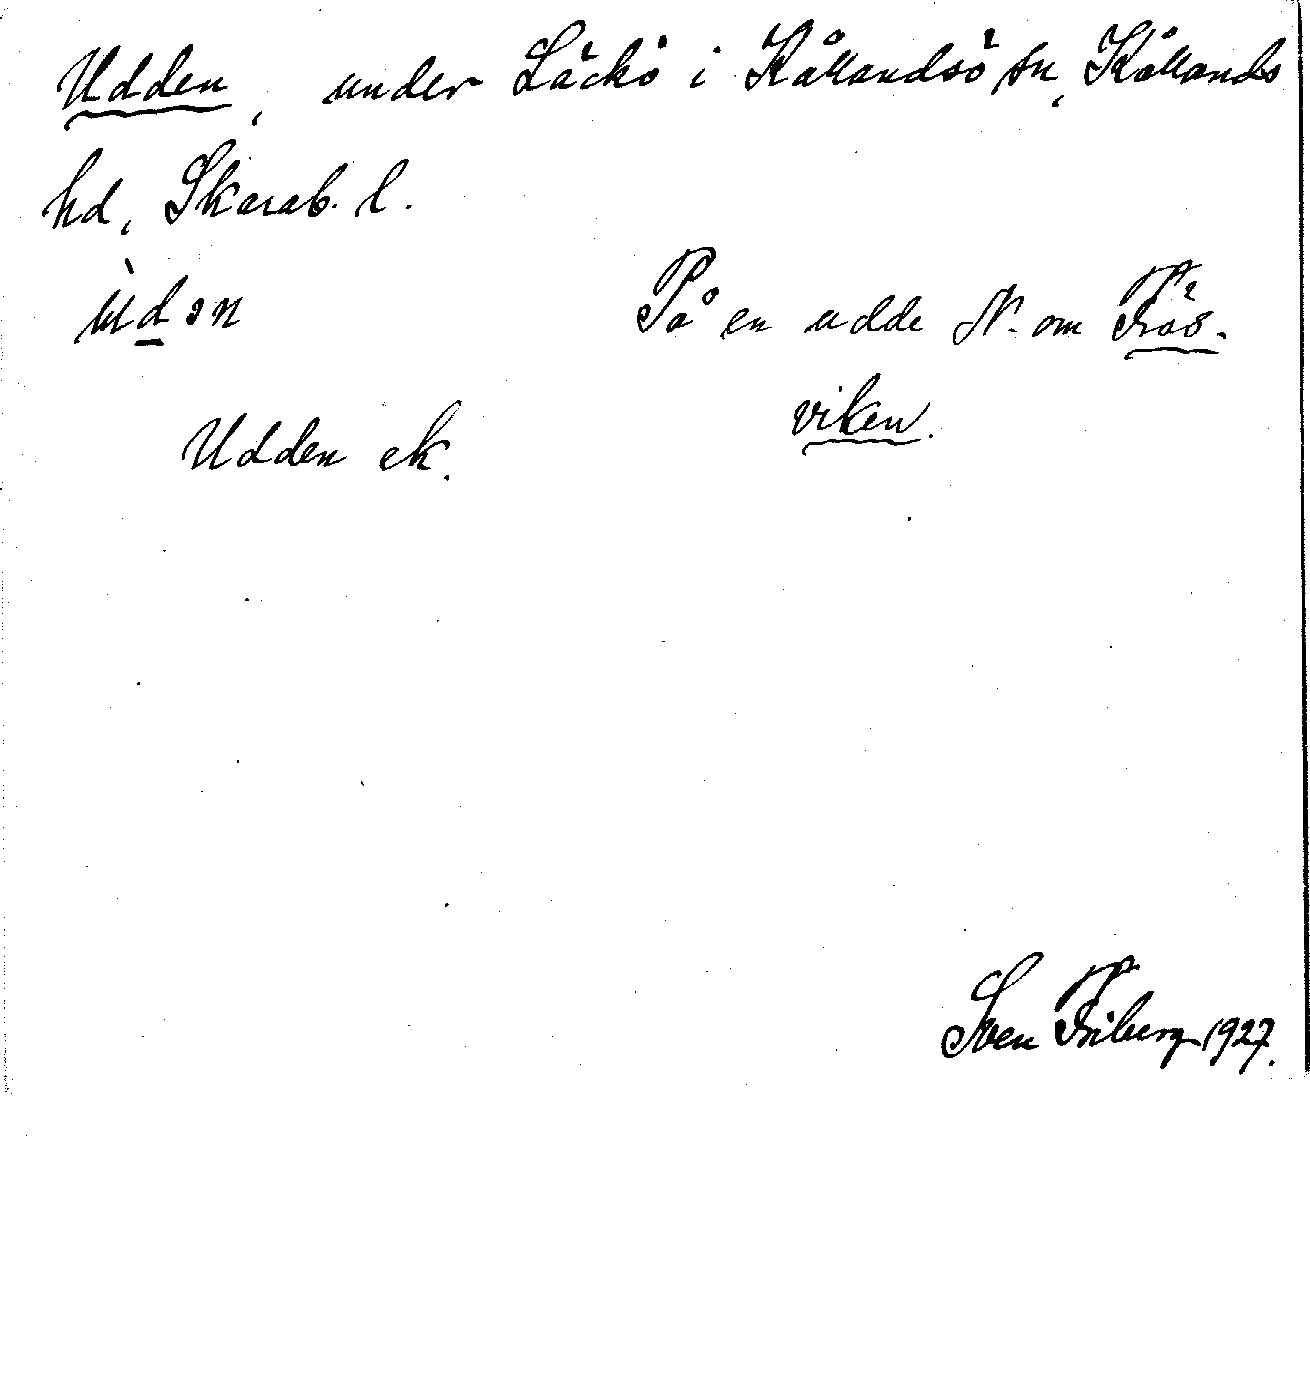 Udden, under Läckö i Kållandsö sn, Kållands
hd, Skarab. l.
ùdən
På en udde N. om Frös-
viken.
Udden ek.
Sven Friberg 1927.